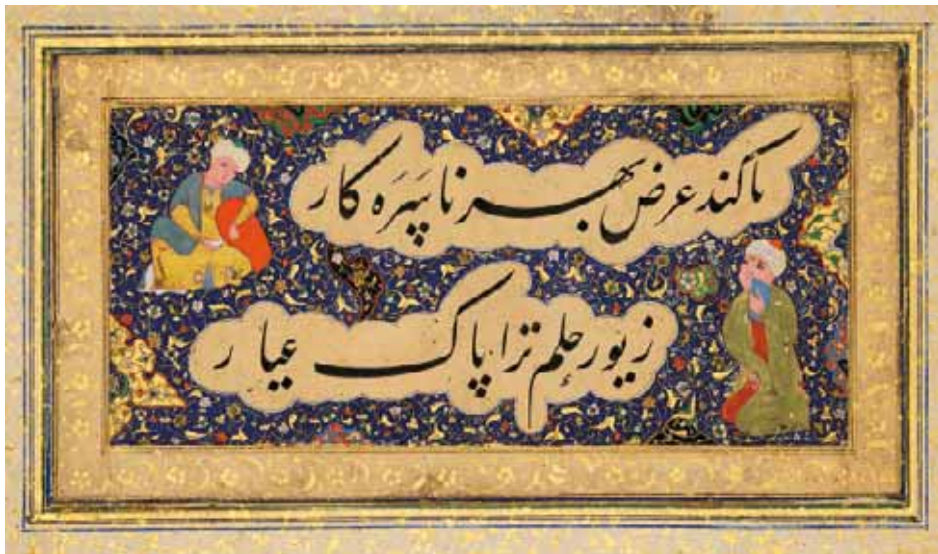 تا کند عرض بهر ناسَرَه کار
زیور حلم ترا پاک عیار